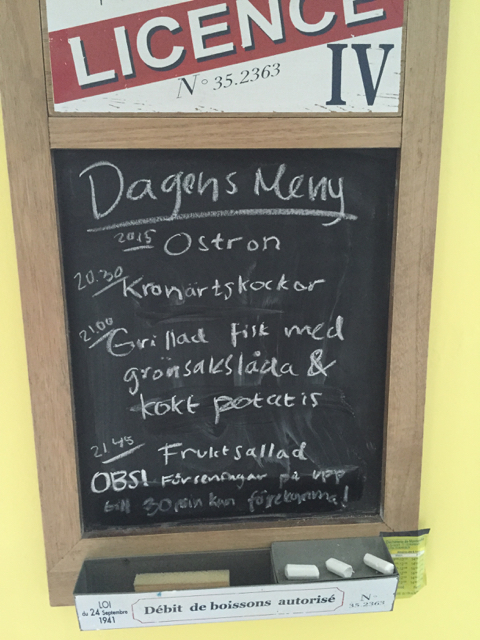 LICENCE
N° 35.2363
IV
Dagens Meny
2015 Ostron
20.30 Kronärtskockor
21.00 Grillad fisk med
grönsakslåda &
kokt potatis
21.45 Fruktsallad
OBS! Förseningar på upp
till 30 min kan förekomma!
LOI
du 24 Septembre
1941
Débit de boissons autorisé
N° 35.2363